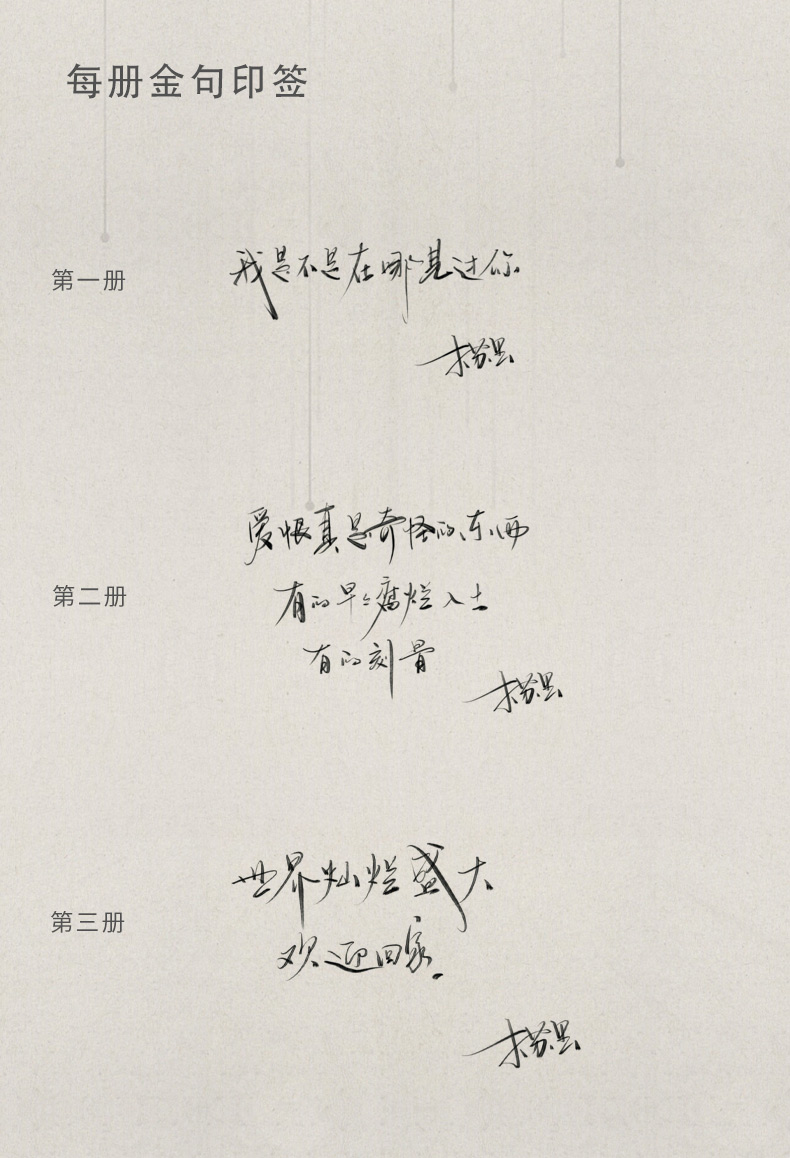 每册金句印签
第一册
我是不是在哪见过你
木苏里
第二册
爱恨真是奇怪的东西
有的早早腐烂入土
有的刻骨
木苏里
第三册
世界灿烂盛大
欢迎回家。
木苏里